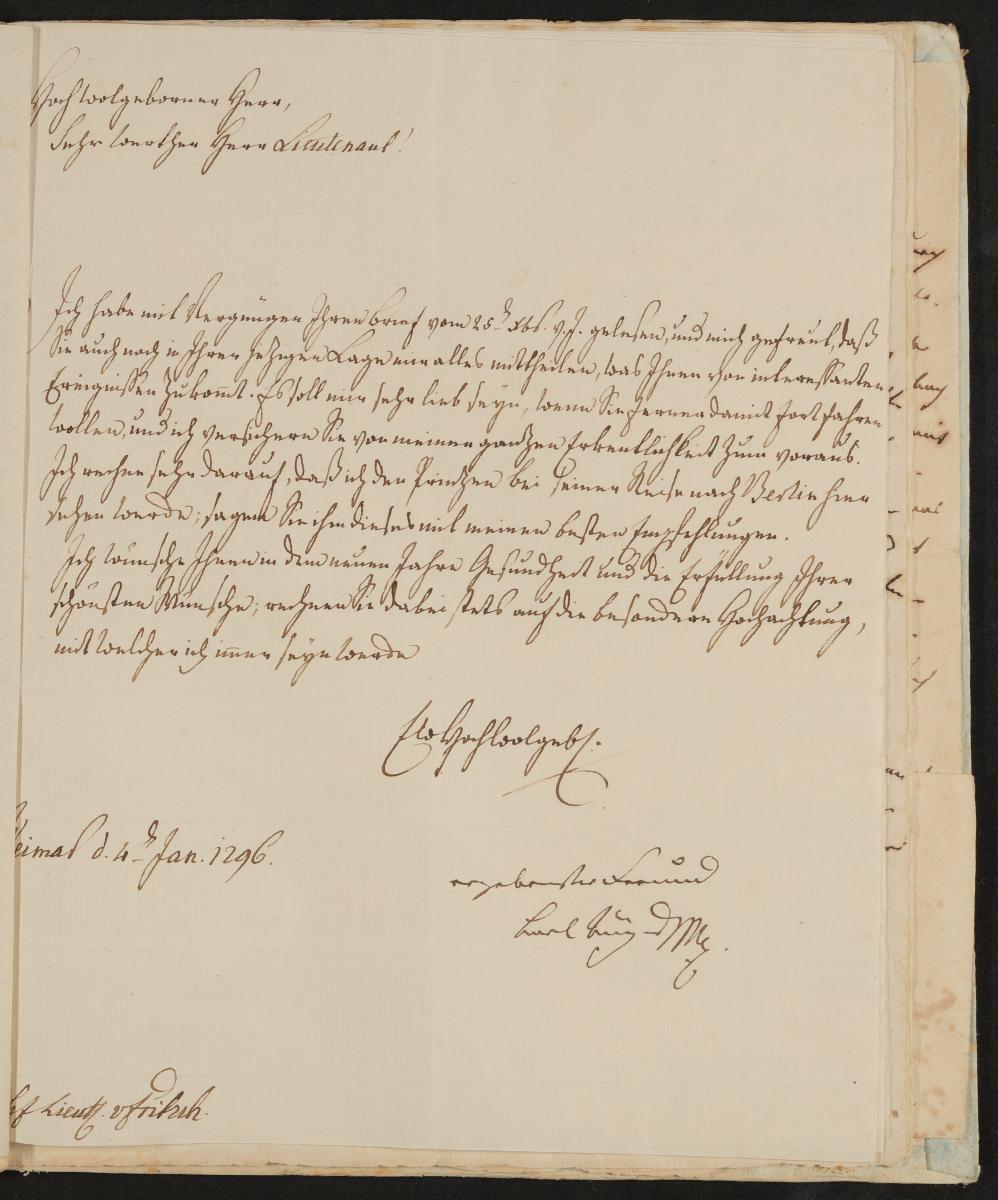 Hochwolgeborner Herr,
Sehr werther Herr Lieutenant!
Ich habe mit Vergnügen Ihren Brief vom 25ten Xbr. v. J. gelesen, und mich gefreut, daß
Sie auch noch in Ihrer jetzigen Lage mir alles mittheilen, was Ihnen von interessanten
Ereignissen zukommt. Es soll mir sehr lieb seyn, wenn Sie ferner damit fortfahren
wollen, und ich versichere Sie von meiner ganzen Erkentlichkeit zum voraus.
Ich rechne sehr darauf, daß ich den Printzen bei seiner Reise nach Berlin hier
sehen werde; sagen Sie ihm dieses mit meinen besten Empfehlungen.
Ich wünsche Ihnen in dem neuen Jahre Gesundheit und die Erfüllung Ihrer
schönsten Wünsche; rechnen Sie dabei stets auf die besondere Hochachtung,
mit welcher ich immer seyn werde
Ew Hochwolgeb.
eimar d. 4ten Jan. 1796.
ergebenster Freund
Carl August
Lieut. v Fritsch.